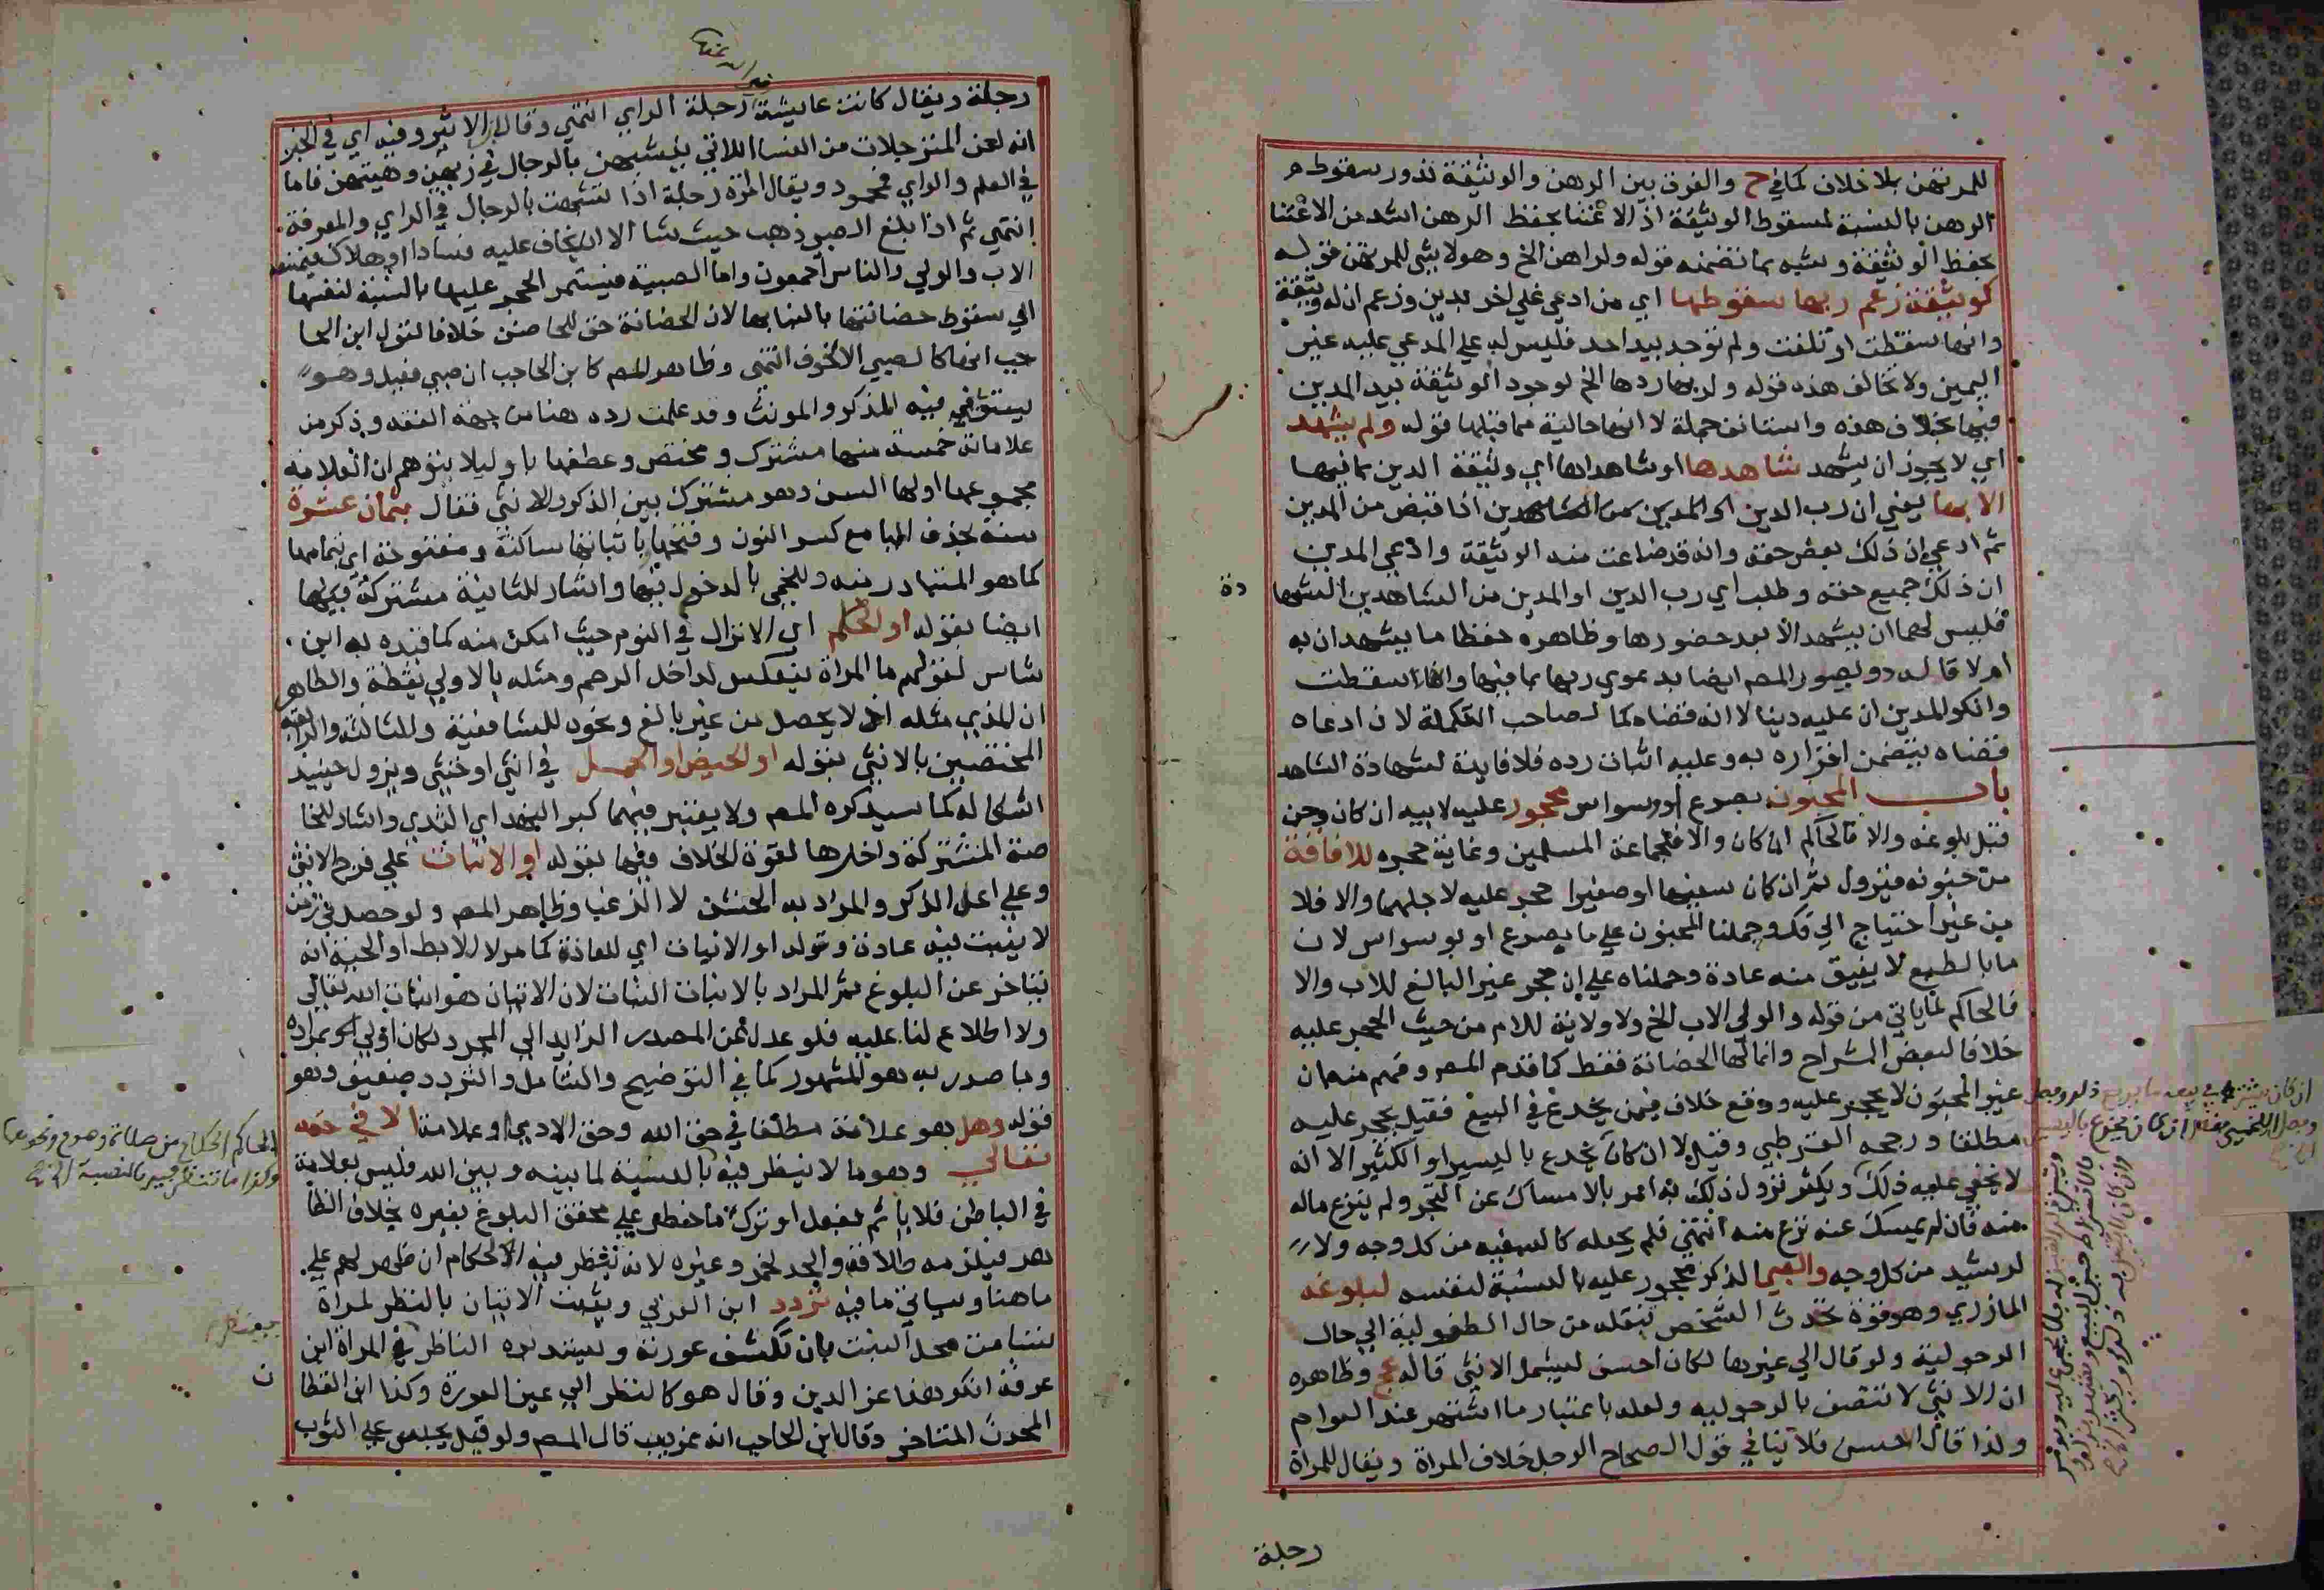 للمرتهن بلا خلاف كما في ح والفرق بين الرهن والوثيقة ندور سقوط
الرهن بالنسبة لسقوط الوثيقة اذ الاعتنا بحفظ الرهن اشد من الاعتنا
بحفظ الوثيقة وشبه بما تضمنه قوله ولراهن الخ وهو لا شي للمرتهن قوله
كوثيقة زعم ربها سقوطها اي من ادعي علي اخر بدين وزعم ان له وثيقة
وانها سقطت او تلفت ولم توجد بيد احد فليس له علي المدعي عليه غير
اليمين ولا تخالف هذه قوله ولربها ردها الخ لوجود الوثيقة بيد المدين
فيها بخلاف هذه واستانف جملة لا انها حالية مما قبلها قوله ولم يشهد
اي لا يجوز ان يشهد شاهدها او شاهداها اي وثيقة الدين بما فيها
الا بها يعني ان رب الدين او المدين من الشاهدين اذا قبض من المدين
ثم ادعي ان ذلك بعض حقه وانه قد ضاعت منه الوثيقة وادعي المدين
ان ذلك جميع حقه وطلب اي رب الدين او المدين من الشاهدين الشها
دة
فليس لهما ان يشهد الا بعد حضورها وظاهره حفظا ما يشهدان به
ام لا قاله د وبصور المصم ايضا بدعوي ربها بما فيها وانها سقطت
وانكر المدين ان عليه دينا لا انه قضاه كما لصاحب التكملة لان ادعاه
قضاه يتضمن اقراره به وعليه اثبات رده فلا فايدة لشهادة الشاهد
باب المجنون بصرع او وسواس محجور عليه لابيه ان كان وجن
قبل بلوغه والا فالحاكم ان كان والا فلجماعة المسلمين وغاية حجره للافاقة
من جنونه فيزول ثم ان كان سفيها او صغيرا حجر عليه لاجلهما والا فلا
من غير احتياج الي فك وحملنا المجنون علي ما بصرع او بوسواس لان
ما بالطبع لا يفيق منه عادة وحملناه علي ان حجر غير البالغ للاب والا
فالحاكم لما ياتي من قوله والولي الاب الخ ولا ولاية للام من حيث الحجر عليه
خلافا لبعض الشراح وانما لها الحضانة فقط كما قدم المصم وفهم منه ان
غير المجنون لا يحجر عليه ووقع خلاف فيمن يخدع في البيع فقيل يحجر عليه
مطلقا ورجحه القرطبي وقيل لا ان كان يخدع باليسير او الكثير الا انه
لا يخفي عليه ذلك ويكثر نزول ذلك به امر بالامساك عن التجر ولم ينزع ماله
منه فان لم يمسك عنه نزع منه انتهي فلم يجعله كالسفيه من كل وجه ولا
لرشيد من كل وجه والصبي الذكر محجور عليه بالنسبة لنفسه لبلوغه
المازري وهو قوة تحدث الشخص تنقله من حال الطفولية الي حال
الرجولية ولو قال الي غيرها لكان احسن ليشمل الانثي قاله عج وظاهره
ان الانثي لا تتصف بالرجوليه ولعله باعتبار ما اشتهر عند العوام
ولذا قال احسن فلا ينافي قول الصحاح الرجل خلاف المراة ويقال للمراة
رجلة
رجلة ويقال كانت عايشة رجلة الراي انتهي وقال ابن الاثير وفيه اي في الخبر
انه لعن المترجلات من النسا اللاتي يتشبهن بالرجال في زيهن وهيئتهن فاما
في العلم والراي فمحمود ويقال المراة رجلة اذا تشبهت بالرجال في الراي والمعرفة
انتهي ثم اذا بلغ الصبي ذهب حيث شا الا ان يخاف عليه فسادا او هلاك فيمنعه
الاب والولي والناس اجمعون واما الصبية فيستمر الحجر عليها بالنسبة لنفسها
الي سقوط حضانتها بالبنا بها لان الحضانة حق للحاضن خلافا لقول ابن الحا
جب انها كالصبي الا لخوف انتهي وظاهر المصم كابن الحاجب ان صبي فعيل وهو
يستوي فيه المذكر والمونث وقد علمت رده هنا من جهة الفقه وذكر من
علاماته خمسة منها مشترك ومختص وعطفها باو ليلا يتوهم ان العلامة
مجموعها اولها السن وهو مشترك بين الذكر والانثي فقال بثمان عشرة
سنة بحذف اليا مع كسر النون وفتحها باثباتها ساكنة ومفتوحة اي بتمامها
كما هو المتبادر منه وللخمي بالدخول فيها واشار للثانية مشتركة بينهما
ايضا بقوله او الحلم اي الانزال في النوم حيث امكن منه كما قيده به ابن
شاس لقولهم ما المراة ينعكس لداخل الرحم ومثله بالاولي يقظة والظاهر
ان المذي مثله اذ لا يحصل من غير بالغ ونحوه للشافعية وللثالثة والرابعة
المختصين بالانثي بقوله او الحيض او الحمل في انثي او خنثي ويزول حينيذ
اشكاله كما سيذكره المصم ولا يعتبر فيهما كبر النهد اي الثدي واشار للخا
مسة المشتركة واخرها لقوة الخلاف فيها بقوله او الانبات علي فرج الانثي
وعلي اعلي الذكر والمراد به الخشن لا الزغب وظاهر المصم ولو حصل في زمن
لا ينبت فيه عادة وقوله او الانبات اي للعانة كما مر لا للابط او اللحية لانه
يتاخر عن البلوغ ثم المراد بالانبات النبات لان الانبات هو انبات الله تعالي
ولا اطلاع لنا عليه فلو عدل عن المصدر الزايد الي المجرد لكان اولي بمراده
وما صدر به هو المشهور كما في التوضيح والشامل والتردد ضعيف وهو
قوله وهل هو علامة مطلقا في حق الله وحق الادمي او علامة الا في حقه
تعالي وهو ما لا ينظر فيه بالنسبة لما بينه وبين الله فليس بعلامة
في الباطن فلا ياثم بفعل او ترك ما حظر علي محقق البلوغ بغيره بخلاف الظا
هر فيلزمه طلاقه والحد لخمر وغيره لانه ينظر فيه الحكام ان ظهر لهم علي
ما هنا وسياتي ما فيه تردد ابن العربي ويثبت الانبات بالنظر لمراة
تتسامت محل النبت بان تكشف عورته ويستدبره الناظر في المراة ابن
عرفة انكر هذا عز الدين وقال هو كالنظر الي عين العورة وكذا ابن القطا
ن
المحدث المتاخر وقال ابن الحاجب انه غريب قال المصم ولو قيل يجلس علي الثوب